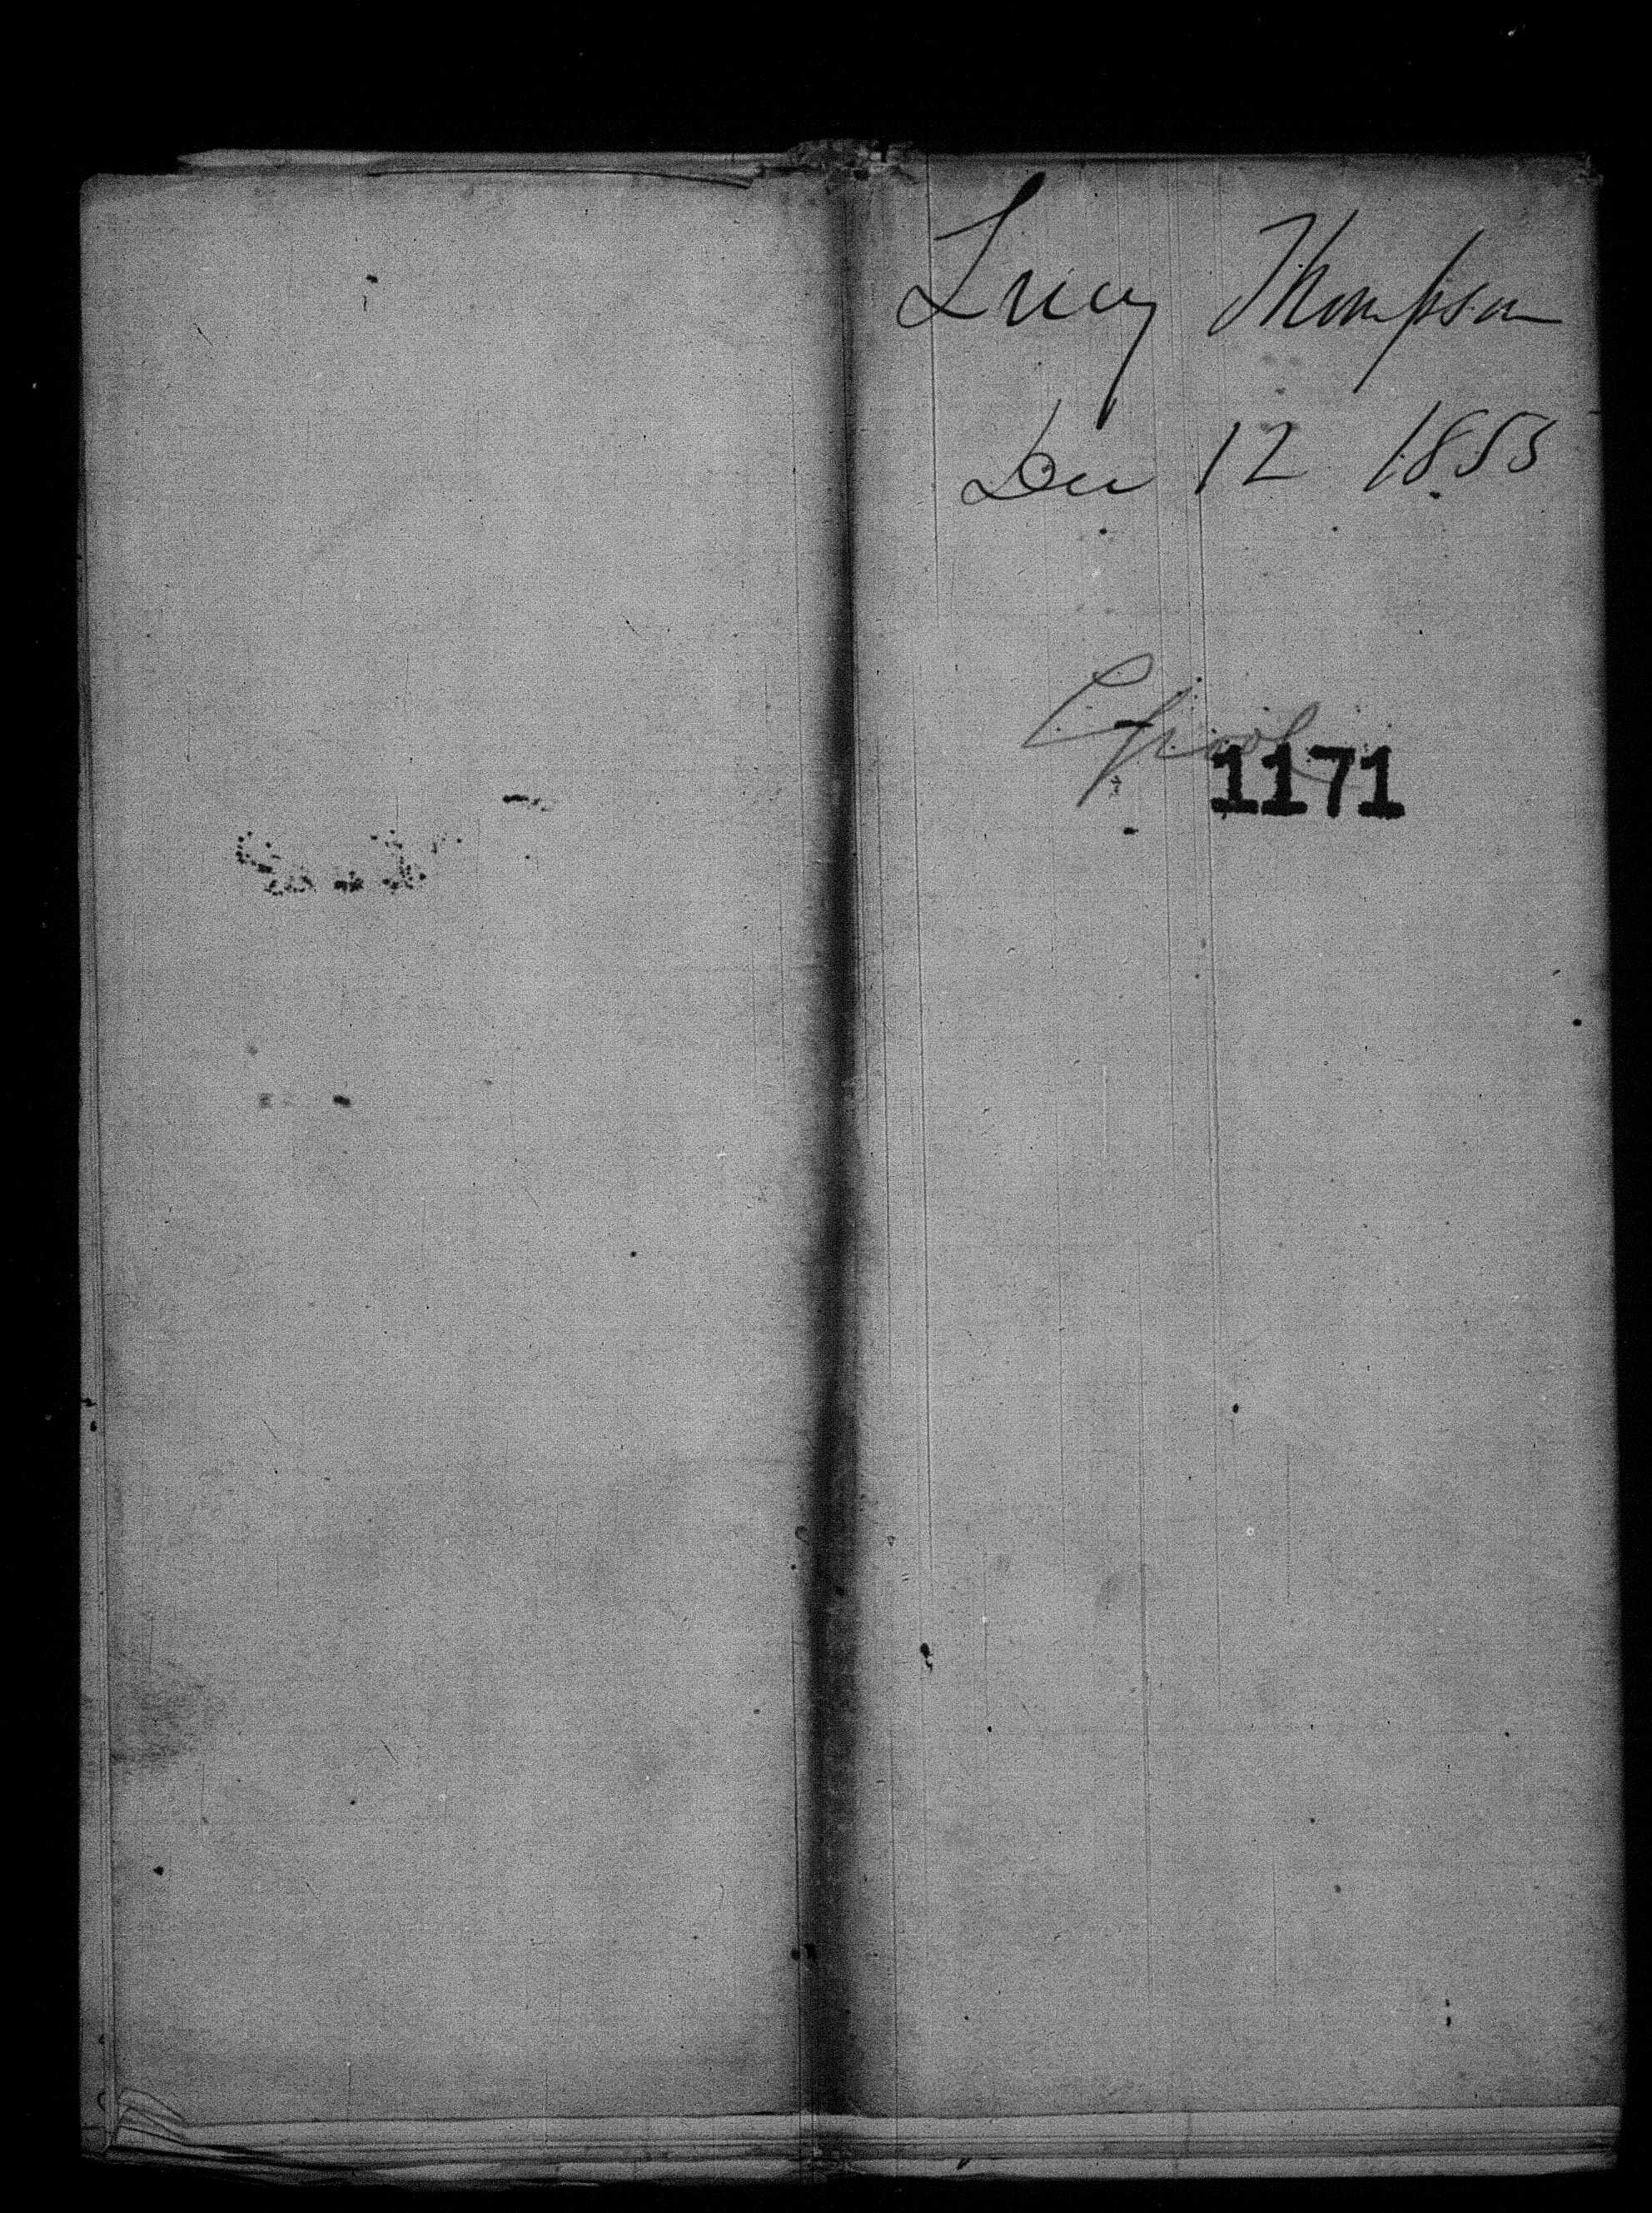 Lucy Thompson
Dec 12 1853
1171